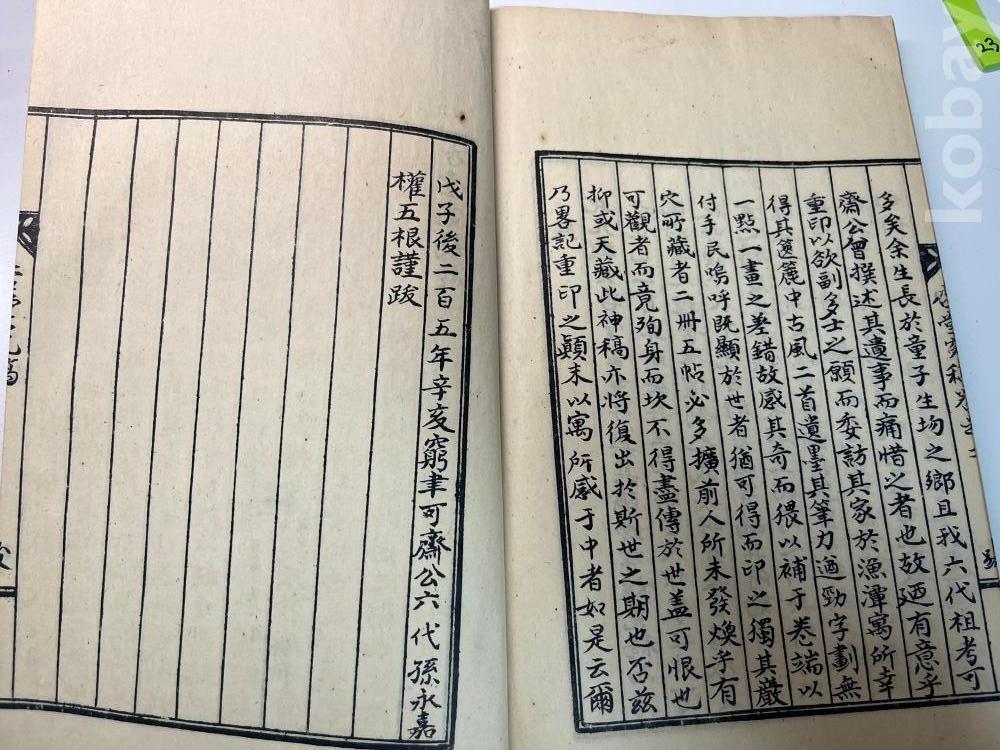 多矣余生長於童子生場之鄉且我六代祖考可
齋公曾撰述其遺事而痛惜之者也故廼有意乎
重印以欲副多士之願而委訪其家於漁潭寓所幸
得其篋簏中古風二首遺墨其筆力遒勁字劃無
一點一畫之差錯故感其奇而猥以補于卷端以
付手民嗚呼既顯於世者猶可得而印之獨其巖
穴所藏者二冊五帖必多擴前人所未發煥乎有
可觀者而竟殉身而坎不得盡傳於世盖可恨也
抑或天藏此神稿亦將復出於斯世之期也否玆
乃畧記重印之顚末以寓所感于中者如是云爾
戊子後二百五年辛亥窮聿可齋公六代孫永嘉
權五根謹跋
kobay
23